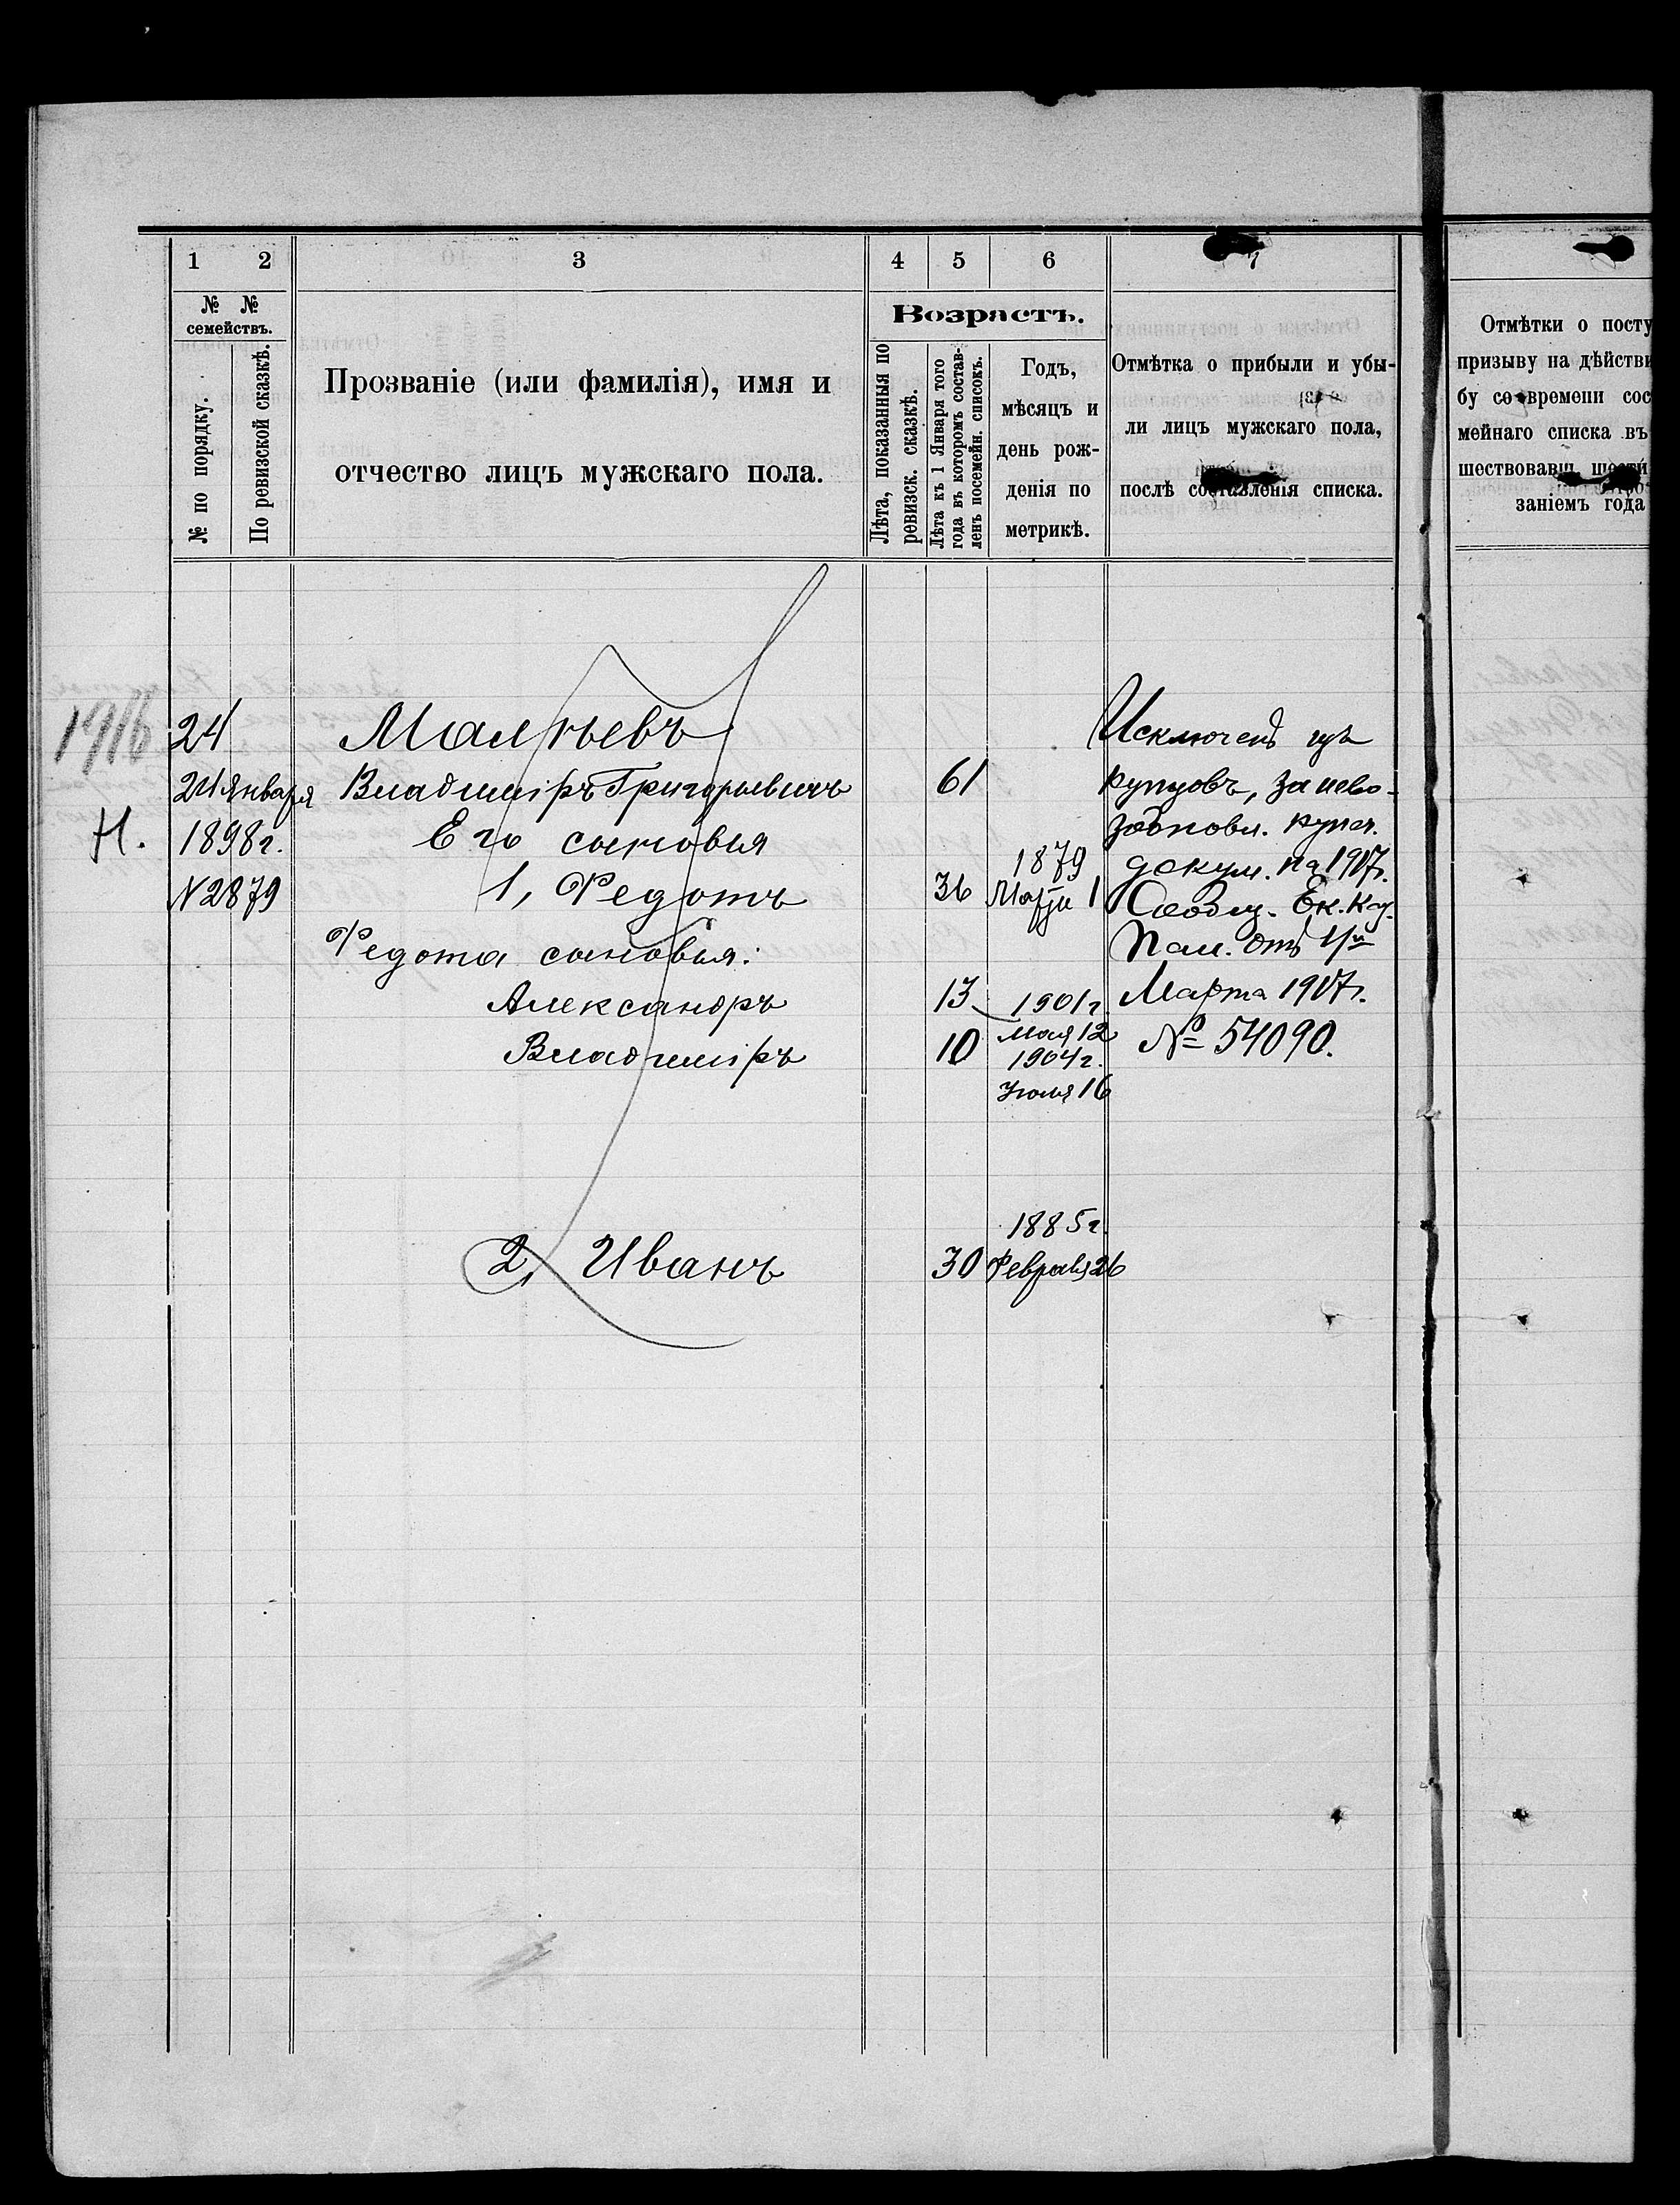 1 2 3 4 5 6 7
№ № семействъ.
№ по порядку.
По ревизской сказкѣ.
Прозваніе (или фамилія), имя и
отчество лицъ мужскаго пола.
Возрастъ.
Лѣта, показанныя по
ревизск. сказкѣ.
Лѣта къ 1 Января того
года въ которомъ состав-
ленъ посемейн. списокъ.
Годъ,
мѣсяцъ и
день рож-
денія по
метрикѣ.
Отмѣтка о прибыли и убы-
ли лицъ мужскаго пола,
послѣ составленія списка.
Отмѣтки о посту
призыву на дѣйстви
бу со времени сос
мейнаго списка въ
шествовавш шести
заніемъ года
1916
24
Исключенъ изъ
24 Января Владиміръ Григорьевичъ 61 купцовъ, за нево-
Н. 1898 г. Его сыновья зобновл. купеч.
1879 докум. на 1917 г.
№ 2879 1, Федотъ 36 Марта 1 Сообщ. Ек. Каз.
Федота сыновья: Пал. отъ
Александръ 13 1901 г. Марта 1917 г.
Мая 12
Владиміръ 10 1904 г. № 54090.
Іюля 16
1885 г.
2, Иванъ 30 Февраля 26